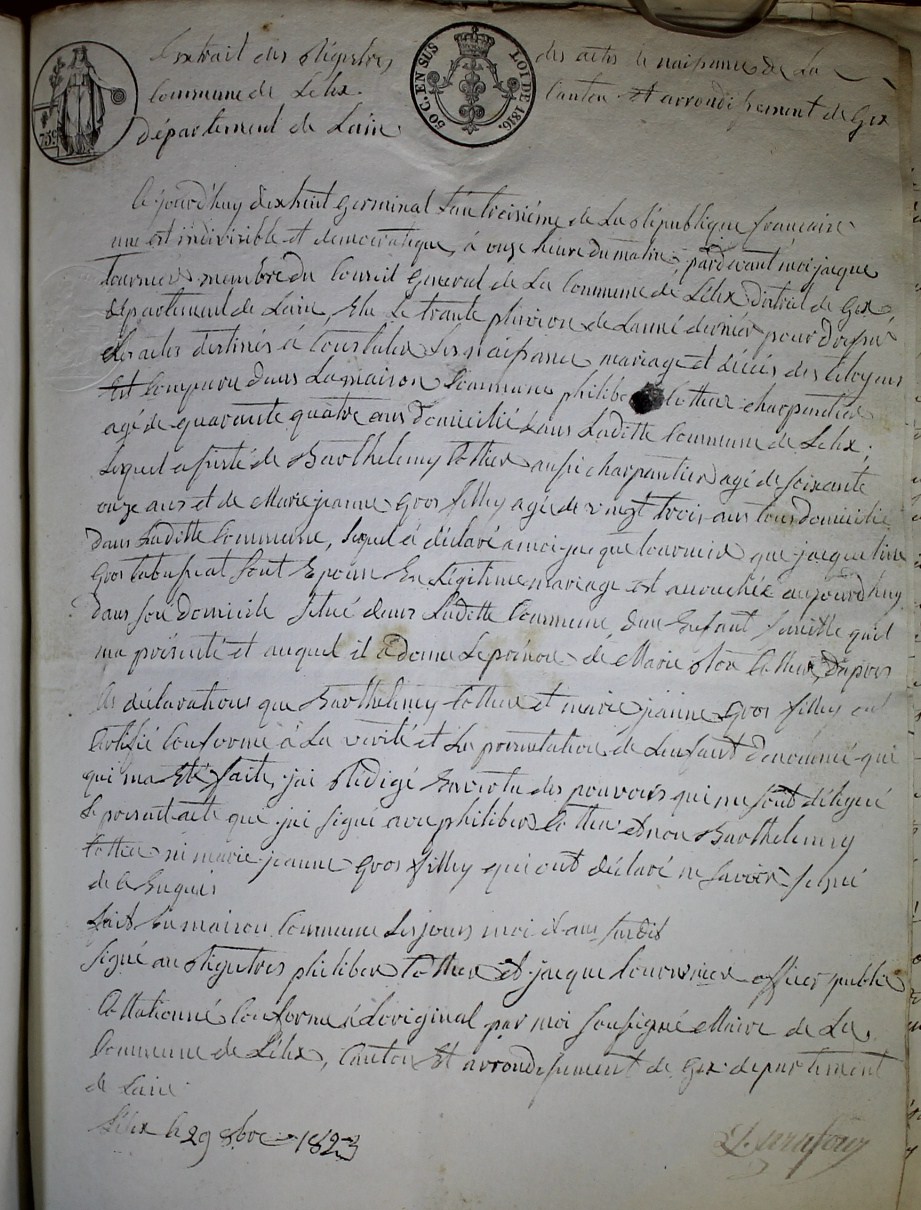 Extrait des Régistres des actes de naissance de La
Commune de Lélex. Canton Et arrondissement de Gex
Département de Lain
50 C. EN SUS LOI DE 1816.
75c
Aujourd'huy dixhuit germinal l'an troisiéme de La République francaise
une est indivisible et democratique, à onze heure du matin, pardevant moi jacque
tournier membre du Conseil General de La Commune de Lélex district de Gex
département de Lain, Elu Le trante pluviose de Lanné derniér pour
des actes destinés à Constater Les naissance mariage et décès des Citoyens
Est Comparu dans La maison Commune philiber Cottier charpantier
agé de quarante quatre ans domicilié dans Laditte Commune de Lélex;
Lequel assisté de Barthelemy Cottier aussi charpantier agé de soixante
onze ans et de Marie jeanne Gros filly agé de vingt trois ans tous domicilié
dans Laditte Commune, Lequel à déclaré a moi jacque tournier que jacqueline
Gros sont Epouse En Légitime mariage est accouchée aujourd'huy
dans son domicile situé dans Laditte Commune d'un Enfant femelle qu'il
ma présenté et auquel il à donné Le prénom de Marie Cottier, Dapres
les déclarations que Barthelemy Cottier et marie jeanne Gros filly ont
Certifié Conforme à La vérité et La présentation de Lenfant dénommé qui
qui ma Eté faite, jai Rédigé En vertu des pouvoirs qui me sont délégué
Le présent acte que jai signé avec philiber Cottier et non Barthelemy
Cottier ni marie jeanne Gros filly qui ont déclaré ne savoir signé
de Ce Enquis
fait En maison Commune Les jours moi et ans susdit
Signé au Régistres philiber Cottier et jacque tournier officier public
Collationné Conforme à Loriginal par moi soussigné Maire de La
Commune de Lélex, Canton Et arrondissement de Gex departement
de Lain
Lélex le 29 8bre 1823